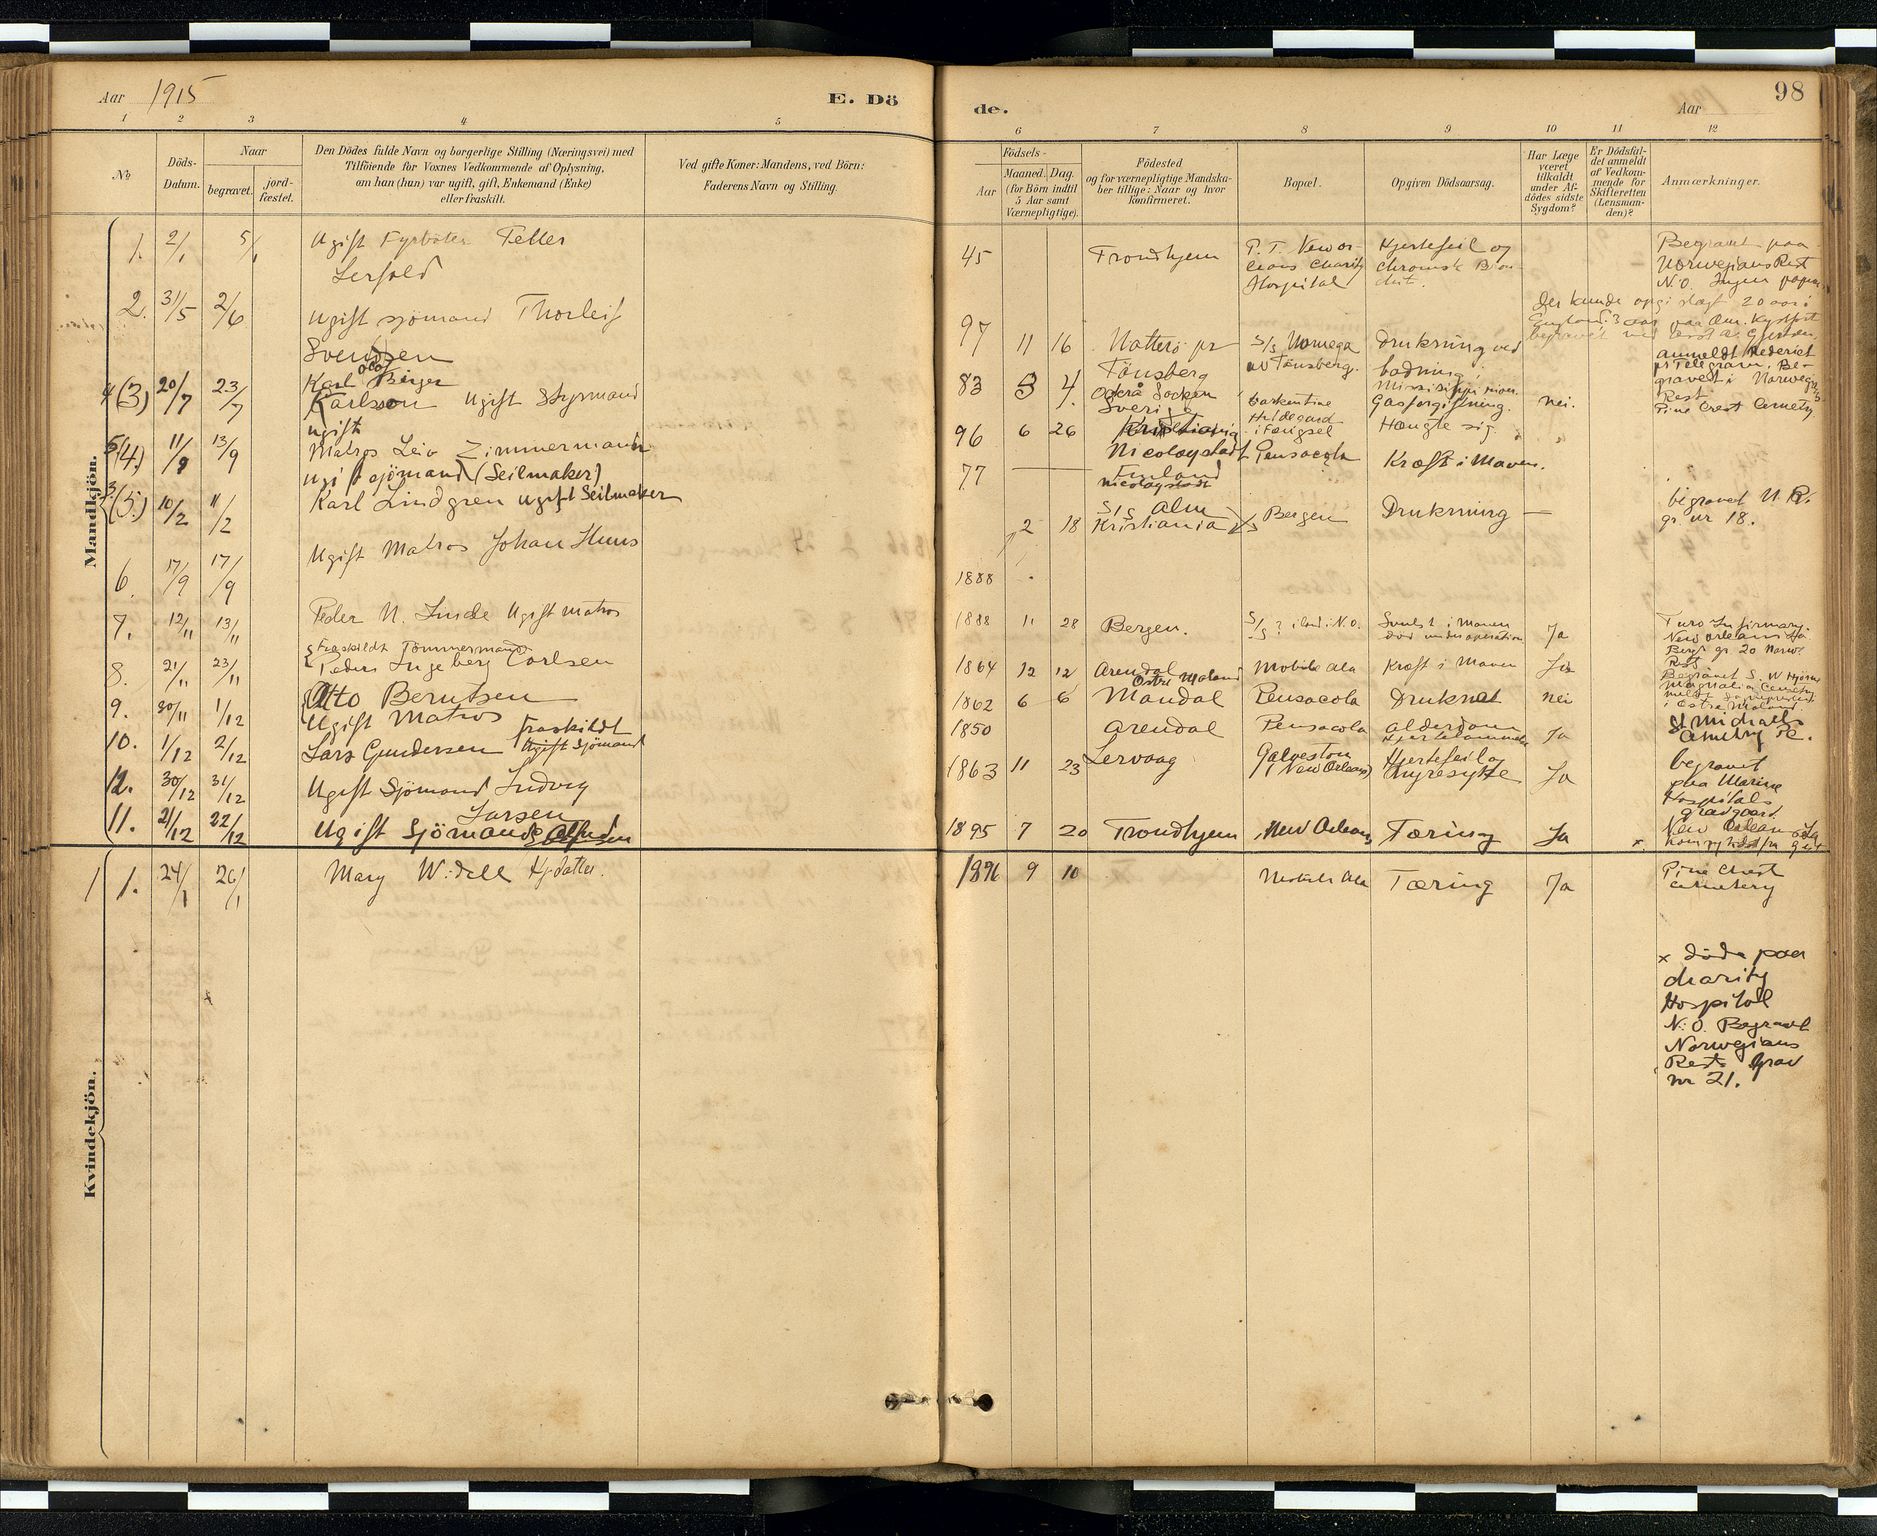 Aar 1915
E. Dö
de.
Aar
98
1 2 3 4 5 6 7 8 9 10 11 12
No
Döds-Datum.
Naar
begravet.
jord-fæstet.
Den Dödes fulde Navn og borgerlige Stilling (Næringsvei) med
Tilföiende for Voxnes Vedkommende af Oplysning,
om han (hun) var ugift, gift, Enkemand (Enke)
eller fraskilt.
Ved gifte Koner: Mandens, ved Börn:
Faderens Navn og Stilling.
Födsels-
Aar
Maaned.
Dag.
(for Börn indtil
5 Aar samt
Værnepligtige).
Födested
og for værnepligtige Mandska-
ber tillige: Naar og hvor
konfirmeret.
Bopæl.
Opgiven Dödsaarsag.
Har Læge
været
tilkaldt
under Af-
dödes sidste
Sygdom?
Er Dödsfal-
det anmeldt
af Vedkom-
mende for
Skifteretten
(Lensman-
den)?
Anmærkninger.
Mandkjön.
1. 2/1 5/1 Ugift Fyrböter Teller
45 Trondhjem P. T. New Or-
leans Charity
Hospital
Hjertefeil og
chronisk Bron
chit.
Begravet paa
Norwegians Rest
N.O. Ingen
2. 31/5 2/6 Ugift sjömand Thorleif
Svendsen
97 11 16 Nötterö pr
Tönsberg
S/S Noruega
av Tönsberg.
Drukning ved
badning
Der kunde opgi slegt 20 aar i
anmeldt Rederiet
pr Telegram. Be-
gravet i Norweg
Rest
4 (3) 20/7 23/7 Karl Birger
Karlsson Ugift Styrmand
83 3 4. Öckerö Socken
Sverig
barkentine
Hildegard
Gasforgiftning. nei.
Pine Crest Cemetry
5 (4.) 11/9 13/9 ugift
Matros Leiv Zimmermann
96 6 26 Kristiania
i Fængsel
Pensacola
Hængte sig
3 (5.) 10/2 11/2 Ugift sjömand (Seilmaker)
Karl Lindgren ugift Seilmaker
77 Nicolaystadt
Finland
Nicolaystadt
Kræft i Maven.
6. 17/9 17/9 Ugift Matros Johan Huus
1888
2 18 S/S Alm
Kristiania
Bergen
Drukning —
begravet N. R.
gr. nr 18.
7. 12/11 13/11 Peder N. Linde Ugift matros
1888 11 28 Bergen. S/S ? i land i N.O. Svulst i Maven
död under operation
Ja
Turo Infirmary.
New Orleans La
gr. 20 Norw.
Rest
8. 21/11 23/11 Fraskildt Tömmermand
Peder Ingeberg Carlsen
1864 12 12 Arendal
Östre Moland
Mobile Ala Kræft i Maven Ja
Begravet S. W
Magnolia Cemetry
i Östre Moland
9. 30/11 1/12 Otto Berntsen
Ugift Matros
1862 6 6 Mandal Pensacola Druknet nei
St Michaels
Cemetry
10. 1/12 2/12 Lars Gundersen Fraskildt
Ugift Sjömand
1850 Arendal Pensacola Alderdom
Ja
12. 30/12 31/12 Ugift Sjömand Ludvig
Larsen
1863 11 23 Lervaag Galveston
(New Orleans)
Hjertefeil og
Nyresyke
Ja
begravet
paa Marine
Hospitals
gravgaard.
11. 21/12 22/12 Ugift Sjömand
1895 7 20 Trondhjem New Orleans Tæring Ja x.
New Orleans La
Kvindekjön.
1 1. 24/1 26/1 Mary Wedell Hj.datter.
1896 9 10 Mobile Ala Tæring Ja
Pine Crest
Cemetery
x döde paa
charity
Hospital
N. O. Begravet
Norwegians
Rest Grav
nr 21.